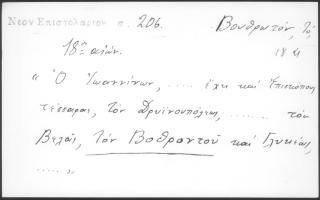 Νεον Επιστολάριον σ. 206. Βουθρωτόν, Τό
18ος αἰών. 18 αἰ
« Ὁ Ἰωαννίνων, ...... ἔχει καί Ἐπισκόπους
τέσσαρας, τόν Δρυϊνουπόλεως, ........ τόν
Βελᾶς, Τόν Βοθροντοῦ καί Γλυκέως,
..... »